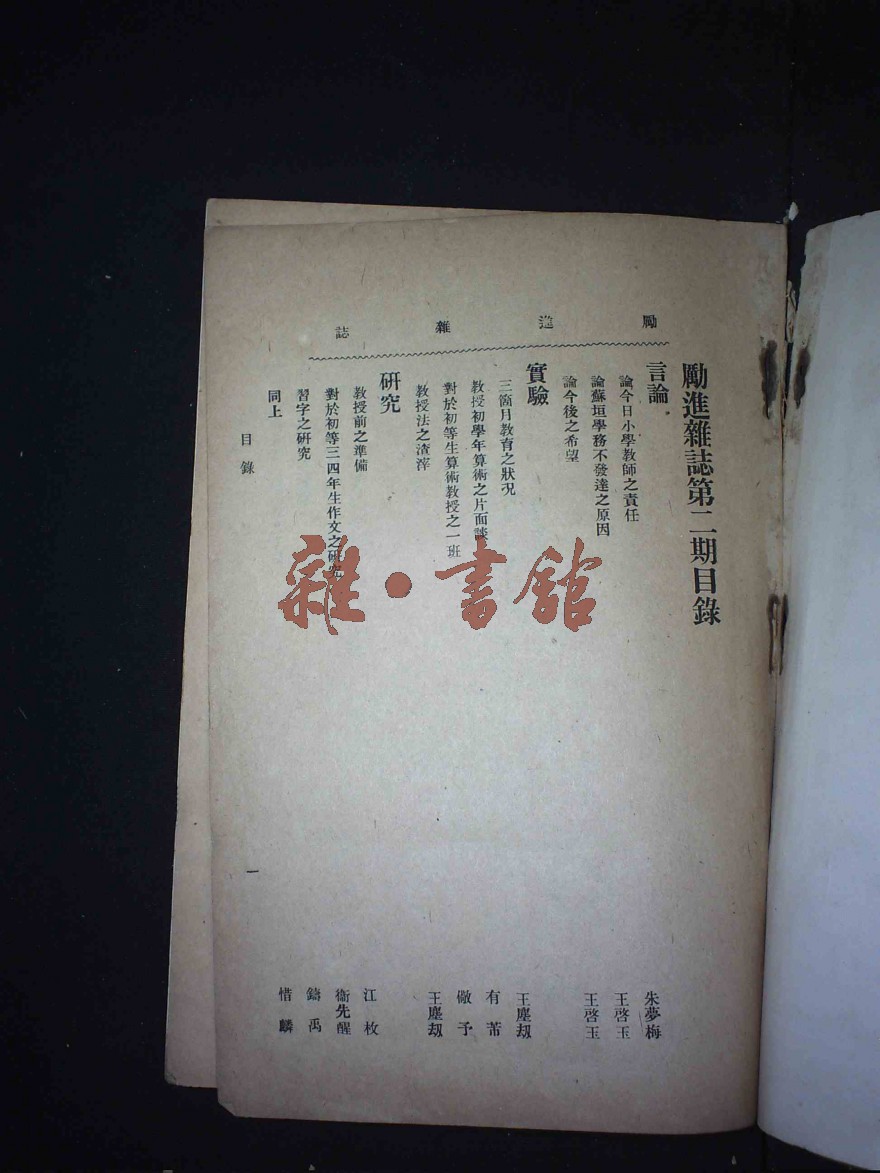 勵進雜誌第二期目錄
勵進雜誌
言論
論今日小學教師之責任 朱夢梅
論蘇垣學務不發達之原因 王啓玉
論今後之希望 王啓玉
實驗
三箇月教育之狀況 王塵刼
教授初學年算術之片面談 有
對於初等生算術教授之一班 儆予
教授法之渣滓 王塵刼
研究
教授前之準備 江枚
對於初等三四年生作文之研究 衞先醒
習字之研究 鑄禹
同上 惜麟
目錄
一
雜·書館